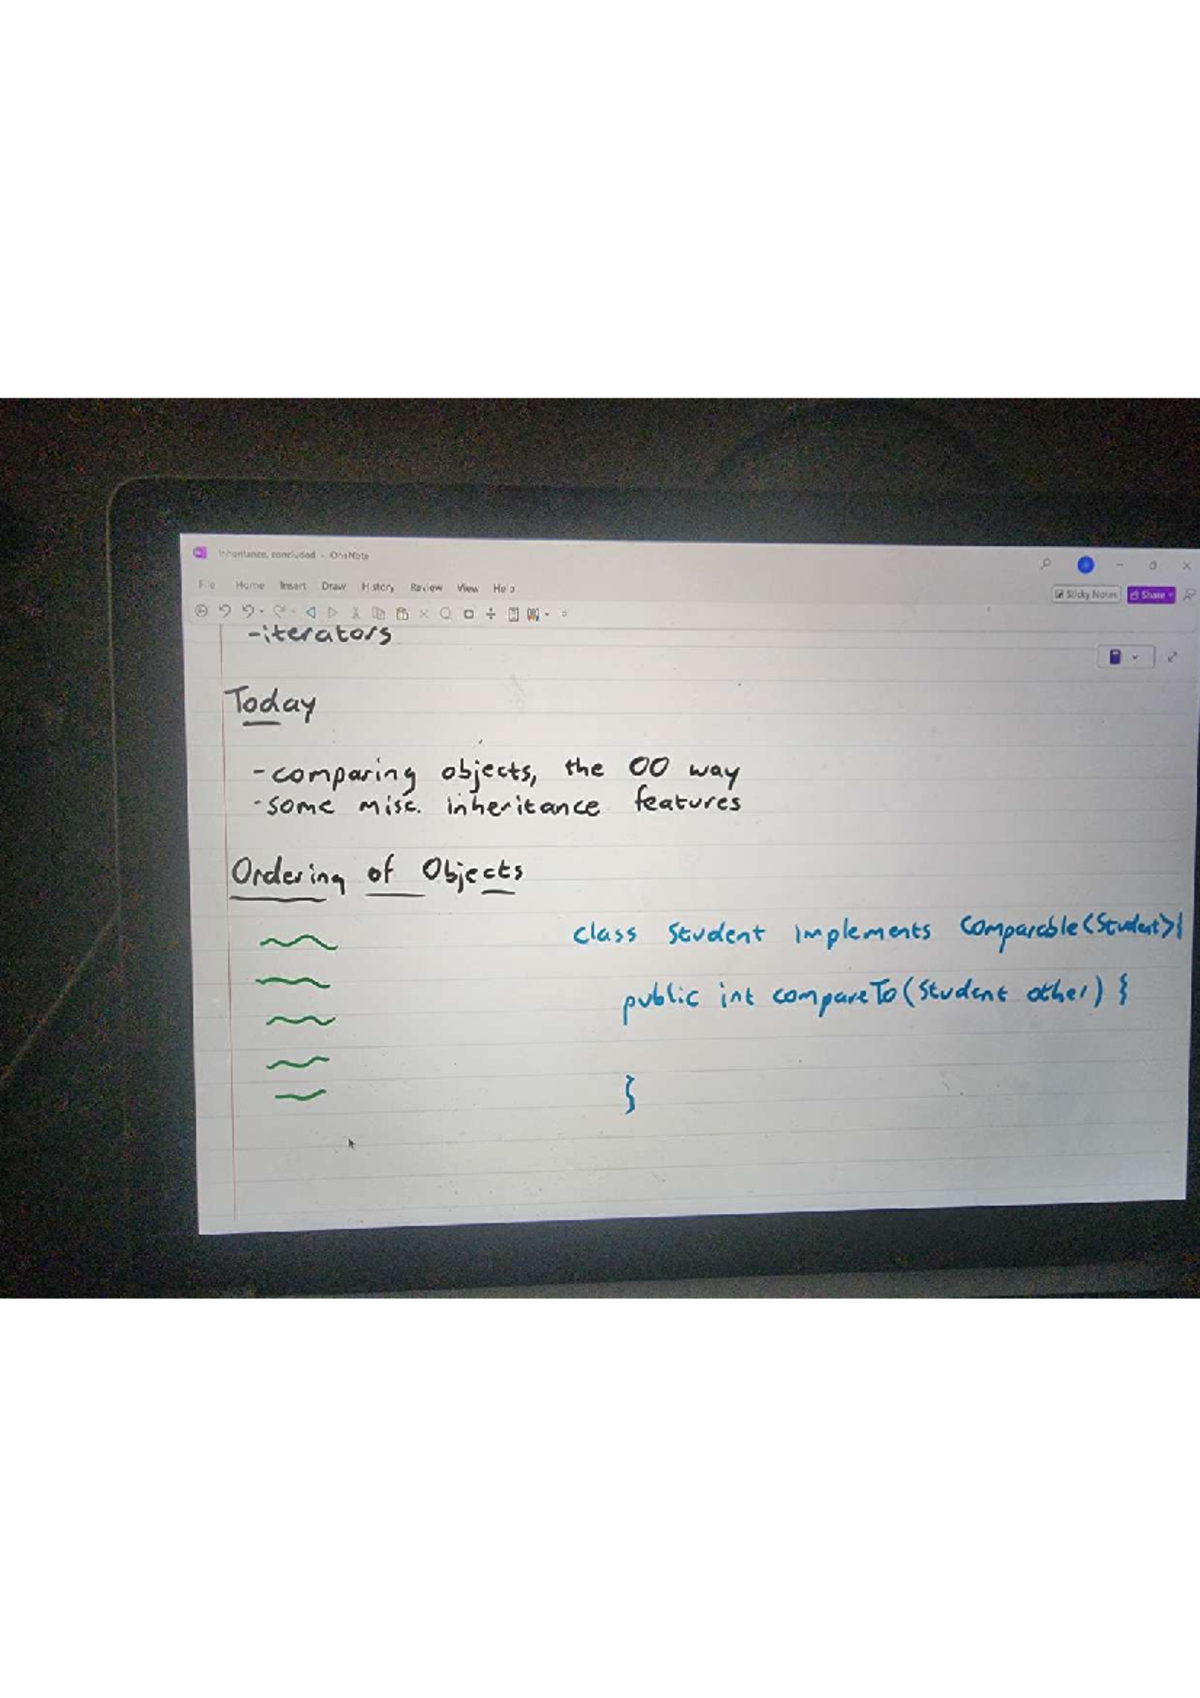 Inheritance, concluded - OneNote
File Home Insert Draw History Review View Help
Sticky Notes Share
-iterators
Today
-comparing objects, the OO way
-some misc. inheritance features
Ordering of Objects
class Student implements Comparable<Student>{
public int compareTo(Student other) {
}